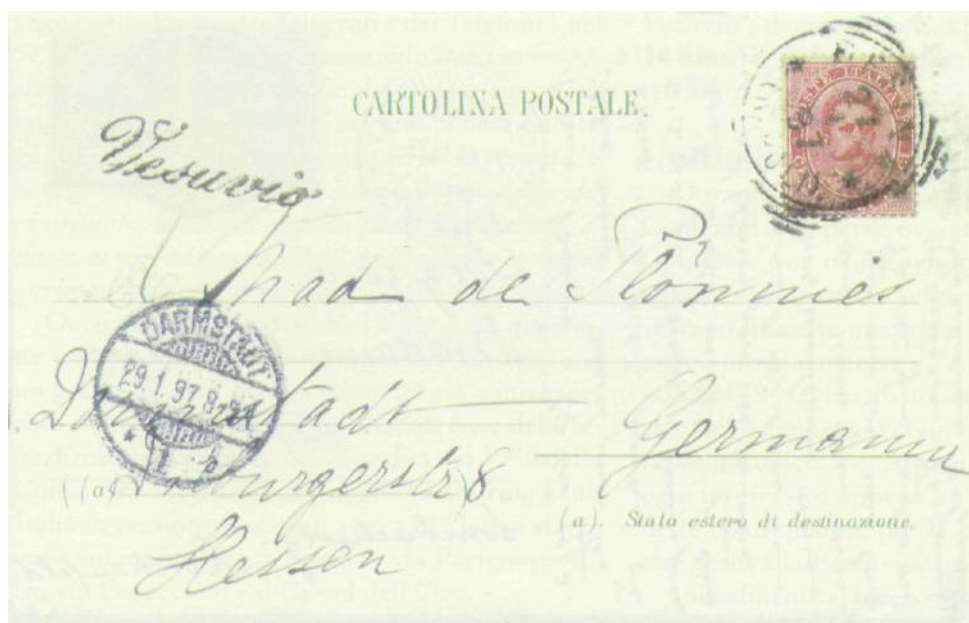 CARTOLINA POSTALE.
POSTE ITALIANE
Vesuvio
Mad de
DARMSTADT
29.1.97.8-9
Darmstadt Germany
(a)
burgerstr 8
(a). Stato estero di destinazione.
Hessen